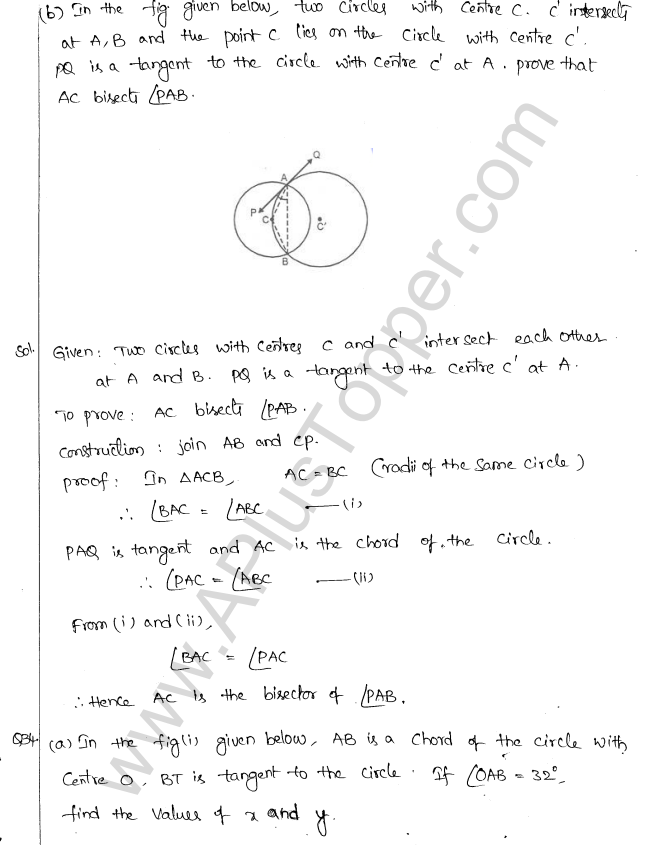 (b) In the fig given below, two circles with centre C. C' intersects
at A, B and the point C lies on the circle with centre C'.
PQ is a tangent to the circle with centre C' at A. prove that
AC bisects ∠PAB.
Q
A
P
C
C'
B
Sol. Given: Two circles with centres C and C' intersect each other
at A and B. PQ is a tangent to the centre C' at A.
To prove: AC bisects ∠PAB.
Construction: join AB and CP.
proof: In ΔACB, AC = BC (radii of the same circle)
∴ ∠BAC = ∠ABC —(i)
PAQ is tangent and AC is the chord of the circle.
∴ ∠PAC = ∠ABC —(ii)
From (i) and (ii),
∠BAC = ∠PAC
∴ Hence AC is the bisector of ∠PAB.
Q34. (a) In the fig(i) given below, AB is a chord of the circle with
Centre O, BT is tangent to the circle. If ∠OAB = 32°,
find the values of x and y.
www.APlusTopper.com